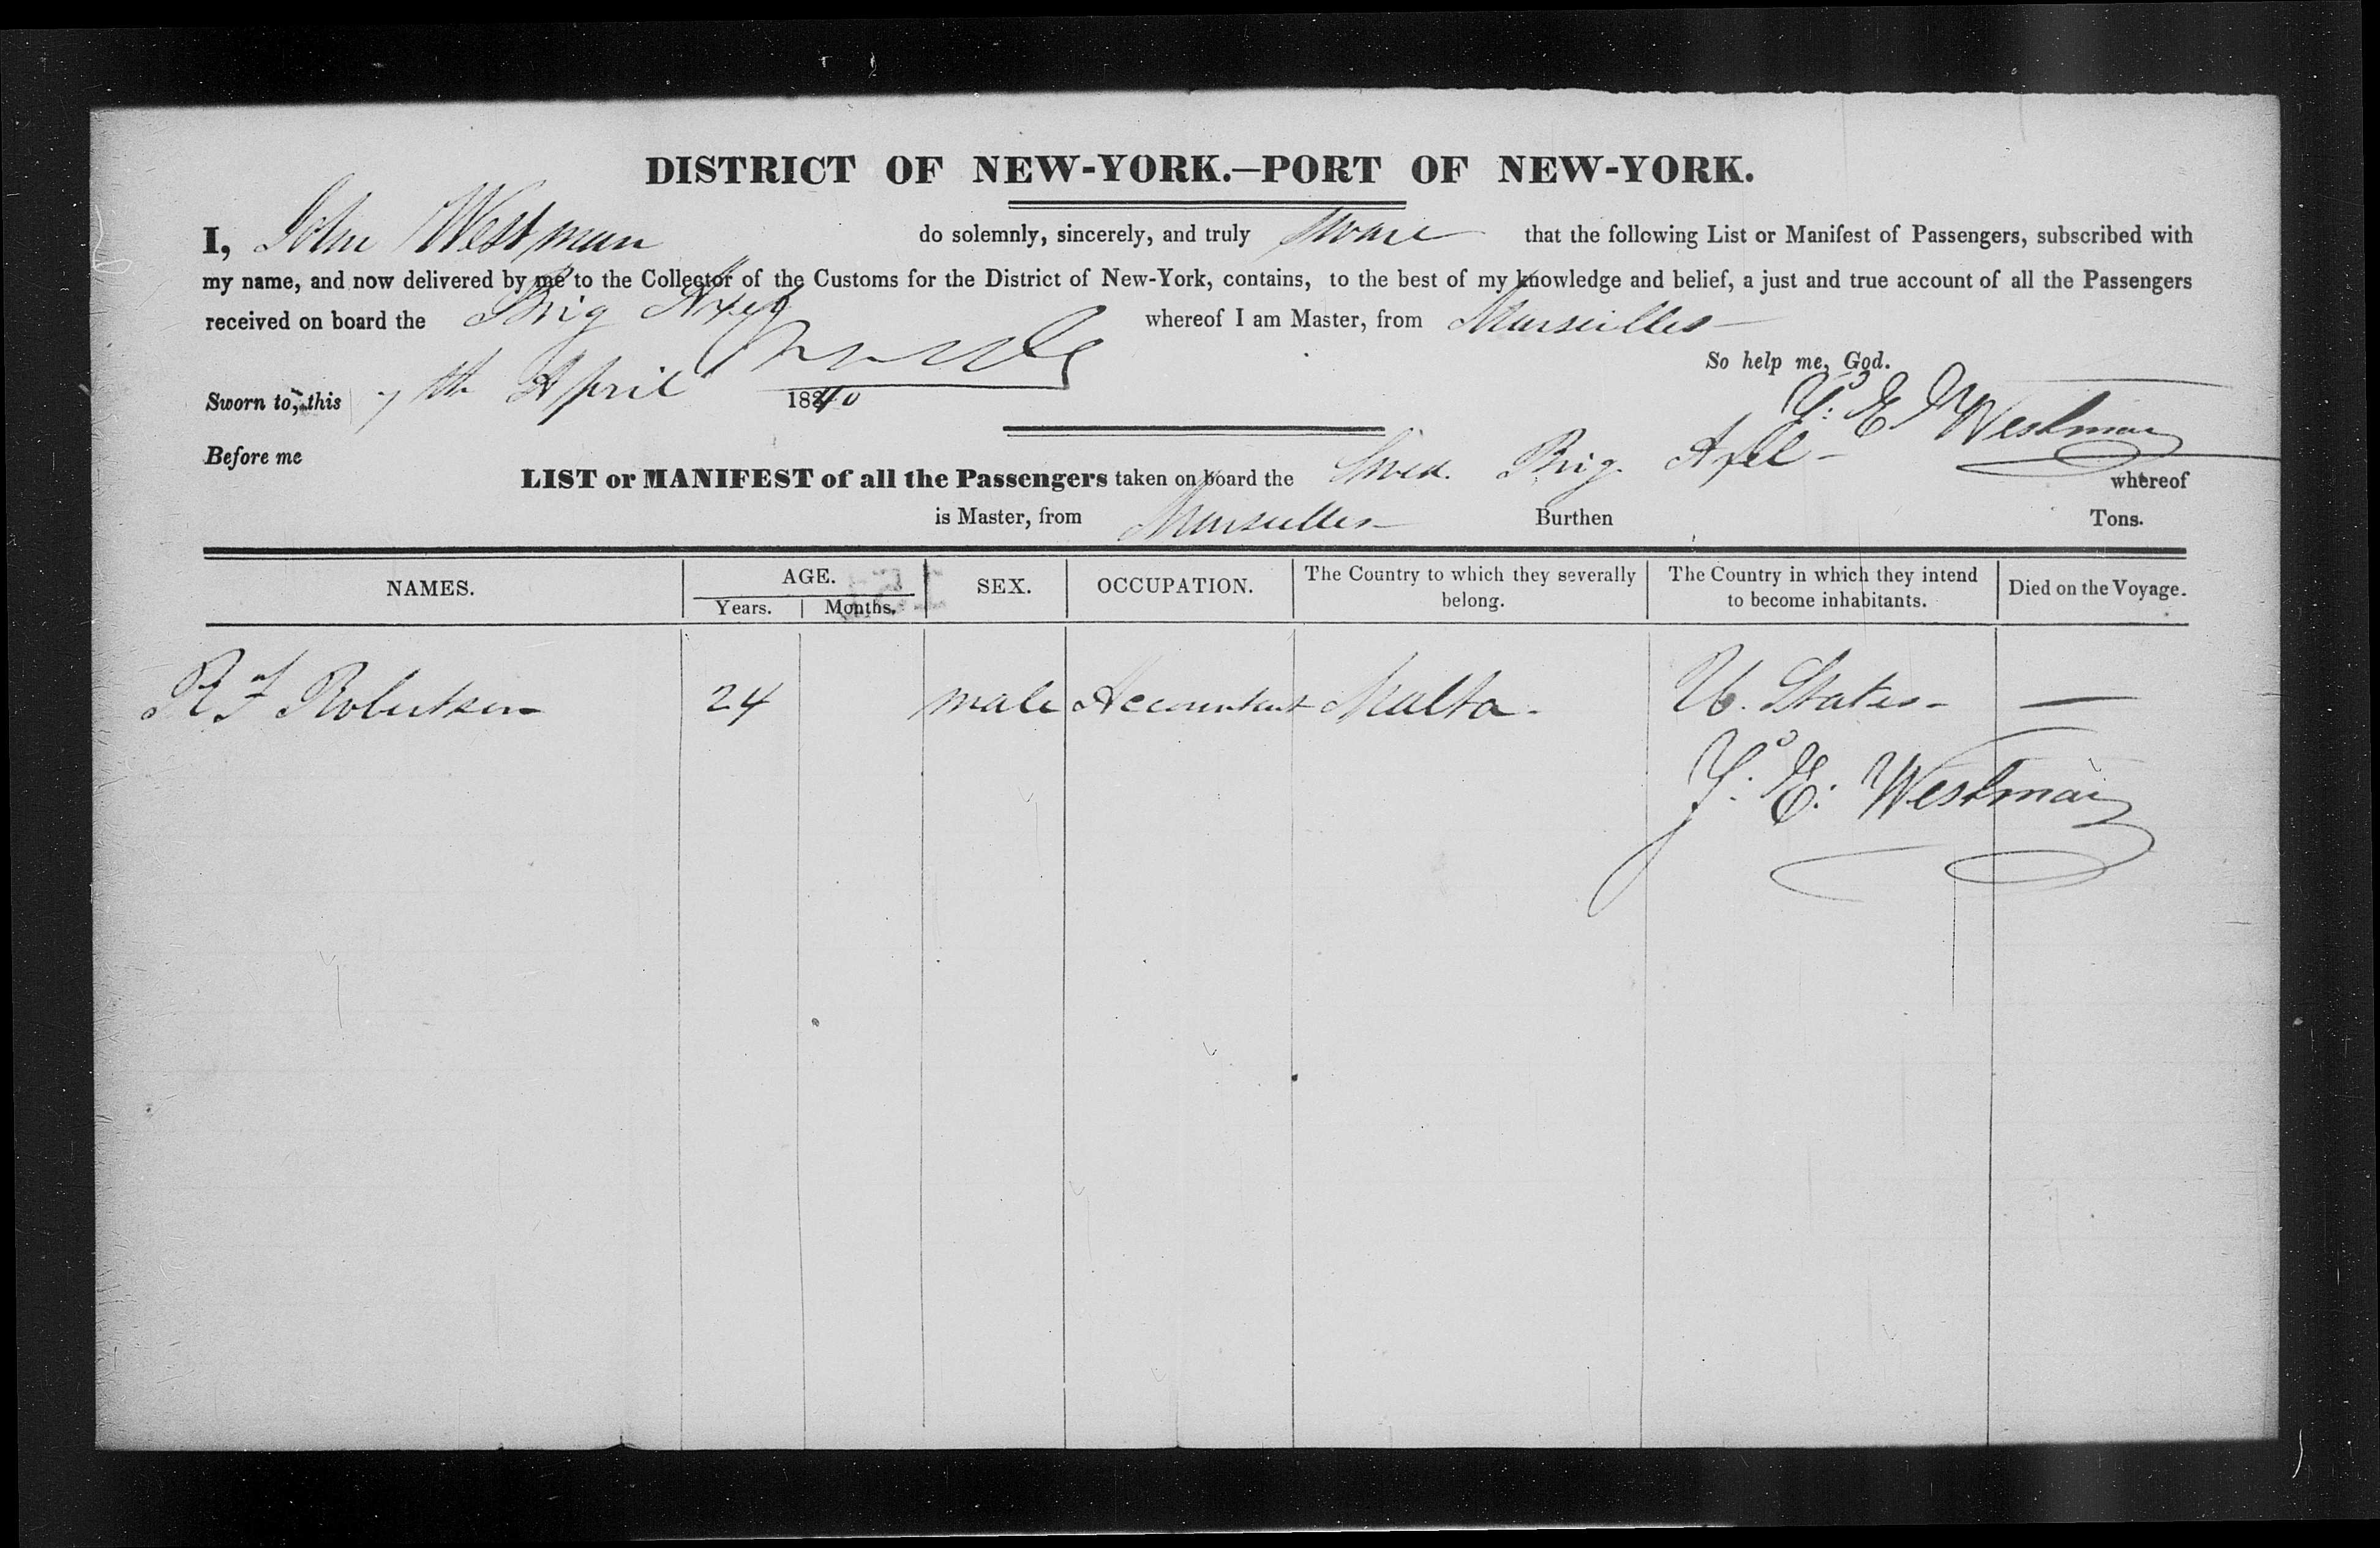 DISTRICT OF NEW-YORK.—PORT OF NEW-YORK.
I, John Westman do solemnly, sincerely, and truly sware that the following List or Manifest of Passengers, subscribed with
my name, and now delivered by me to the Collector of the Customs for the District of New-York, contains, to the best of my knowledge and belief, a just and true account of all the Passengers
received on board the Brig Axel whereof I am Master, from Marseilles
So help me, God.
Sworn to, this 7th April 1840
J:º E Westman
Before me
LIST or MANIFEST of all the Passengers taken on board the Swed. Brig. Axel - whereof
is Master, from Marseilles Burthen Tons.
NAMES. AGE. SEX. OCCUPATION. The Country to which they severally belong. The Country in which they intend to become inhabitants. Died on the Voyage.
Years. Months.
R F Robertson 24 male Accountant Malta - U. States - —
J:º E: Westman